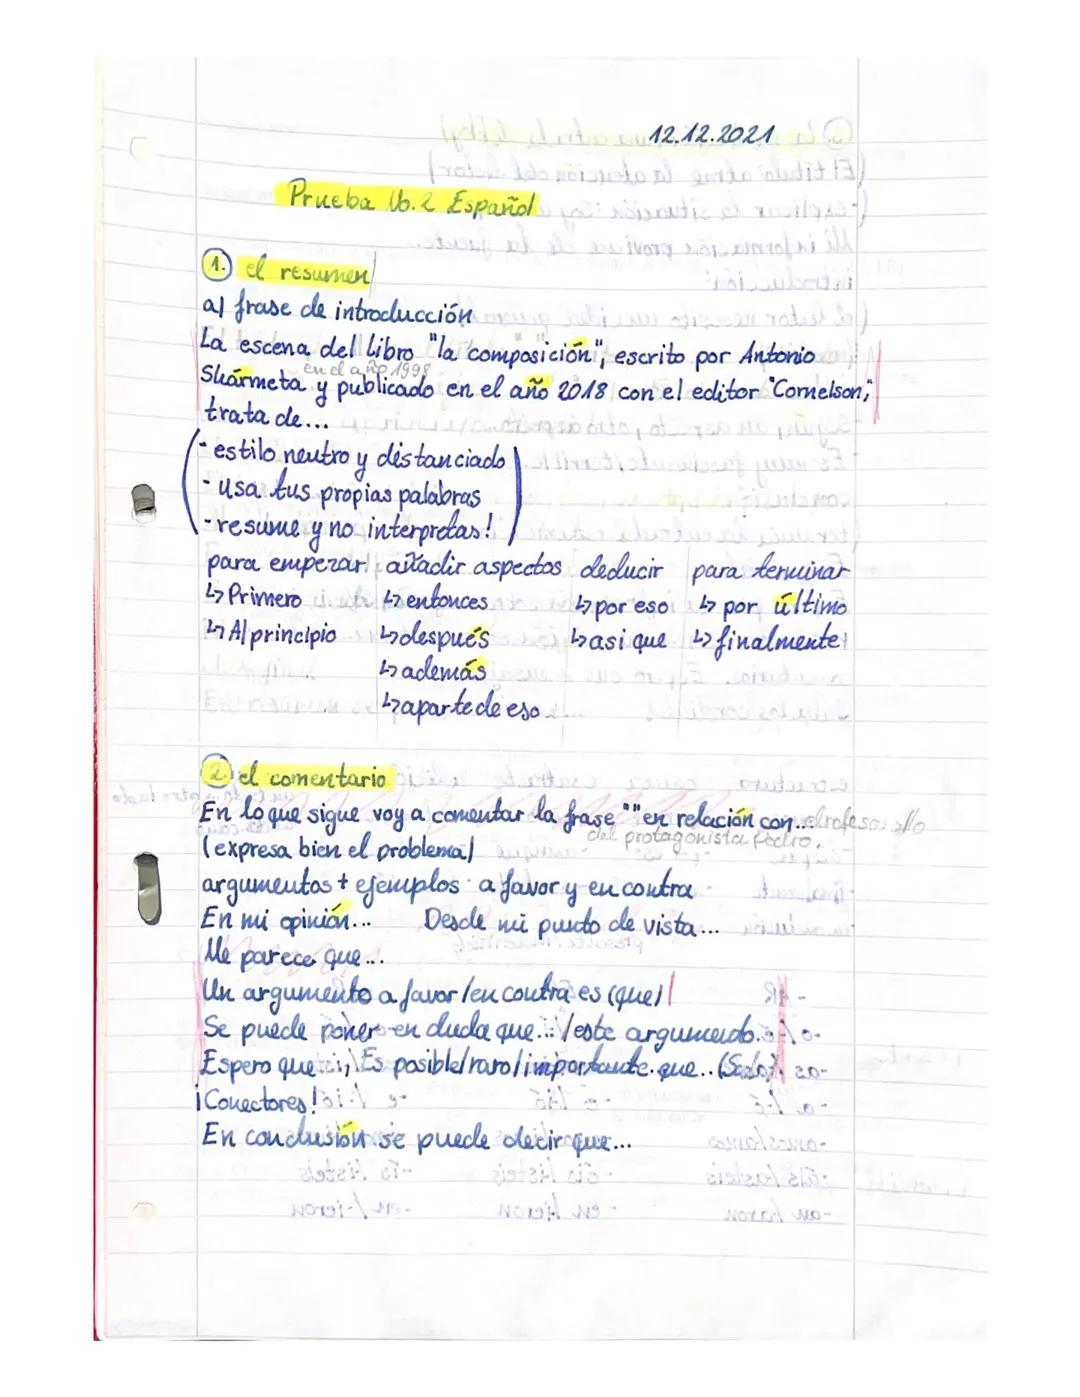 12.12.2021
Prueba No.2 Español
1. el resumen
a) frase de introducción
La escena del libro "la composición", escrito por Antonio
en el año 1998
Skármeta y publicado en el año 2018 con el editor "Cornelson",
trata de...
- estilo neutro y distanciado
- usa tus propias palabras
- resume y no interpretas!
para empezar añadir aspectos deducir para terminar
↳ Primero ↳ entonces ↳ por eso ↳ por último
↳ Al principio ↳ después ↳ asi que ↳ finalmente
↳ además
↳ aparte de eso
2. el comentario
En lo que sigue voy a comentar la frase "" en relación con...
del protagonista Pedro.
(expresa bien el problema)
argumentos + ejemplos a favor y en contra
En mi opinión... Desde mi punto de vista...
Me parece que...
Un argumento a favor/en contra es (que)
Se puede poner en duda que.../este argumento.
Espero que / Es posible/raro/importante que..
¡Conectores!
En conclusión se puede decir que...